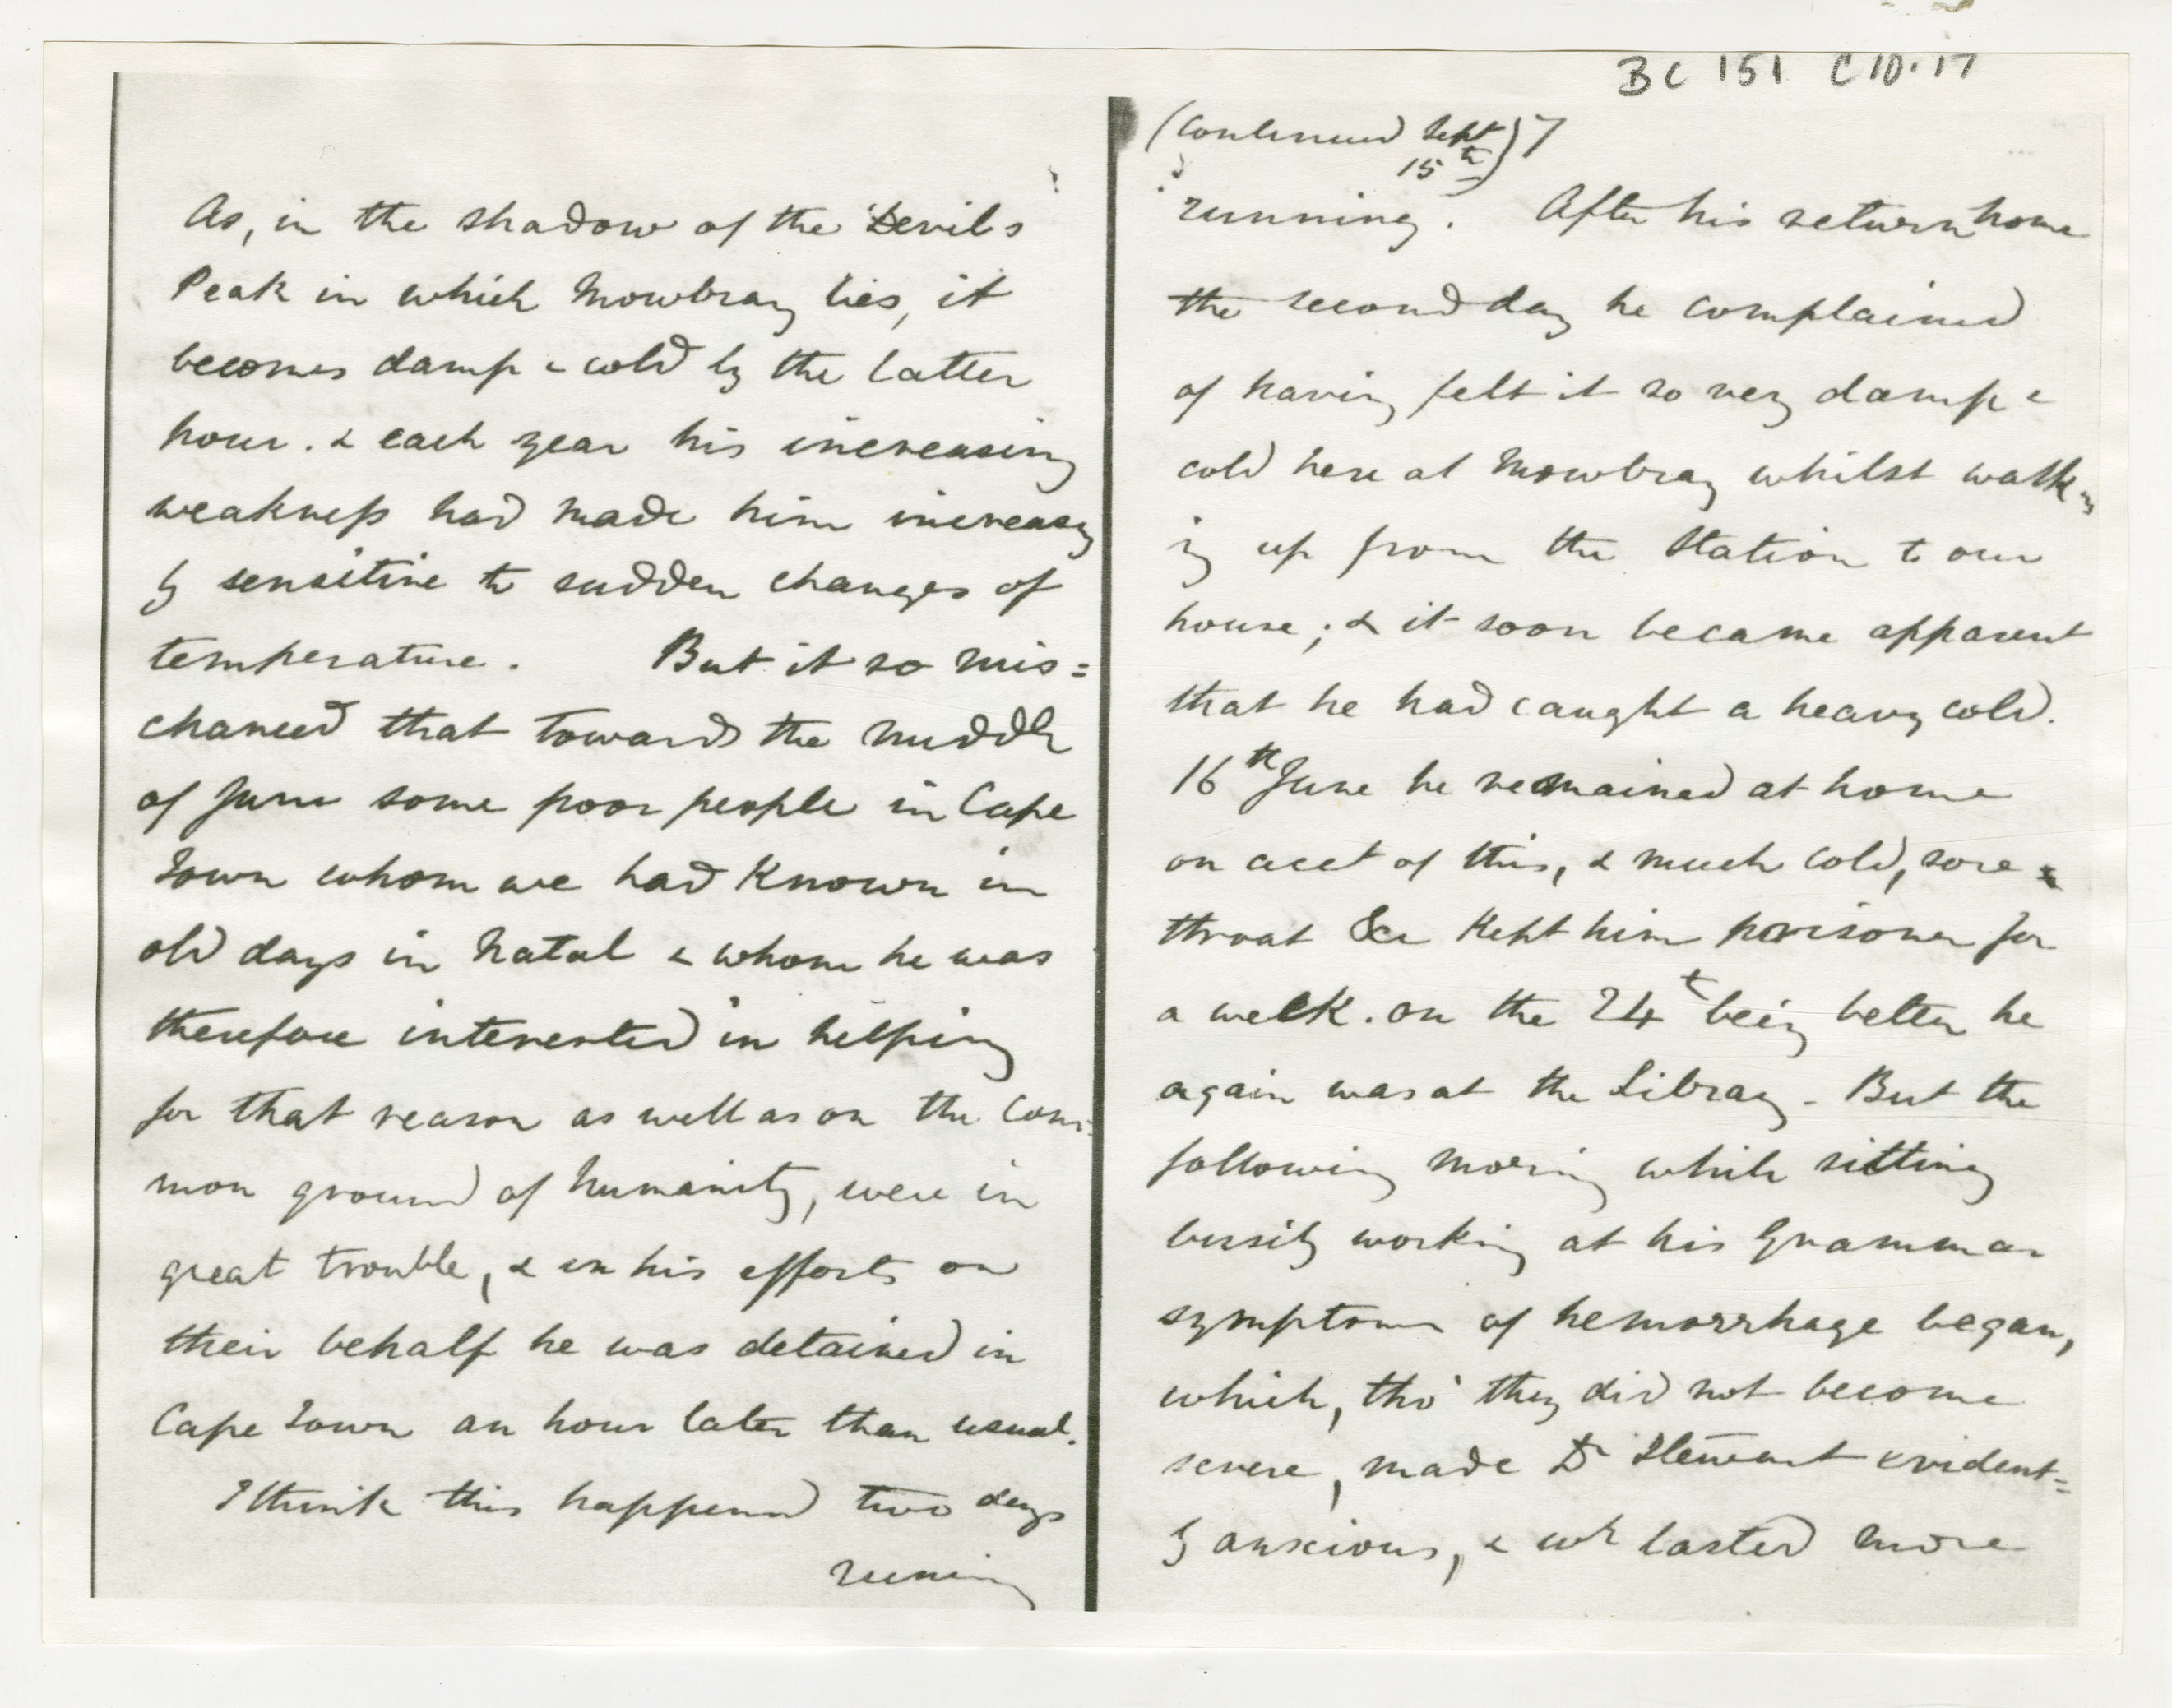 BC 151 C10.17
As, in the shadow of the Devils
Peak in which Mowbray lies, it
becomes damp & cold by the latter
hour. & each year his increasing
weakness had made him increasing
ly sensitive to sudden changes of
temperature. But it so mis=
chanced that towards the middle
of June some poor people in Cape
Town whom we had known in
old days in Natal & whom he was
therefore interested in helping
for that reason as well as on the com=
mon ground of humanity, were in
great trouble, & in his efforts on
their behalf he was detained in
Cape Town an hour later than usual.
I think this happened two days
running
(continued Sept 15th) 7
running. After his return home
the second day he complained
of having felt it so very damp &
cold here at Mowbray whilst walk=
ing up from the Station to our
house; & it soon became apparent
that he had caught a heavy cold.
16th June he remained at home
on acct of this, & much cold, sore
throat &c kept him prisoner for
a week. On the 24t being better he
again was at the Library - But the
following morning while sitting
busily working at his Grammar
symptoms of hemorrhage began,
which, tho' they did not become
severe, made Dr Stewart evident=
ly anxious, & wh lasted more